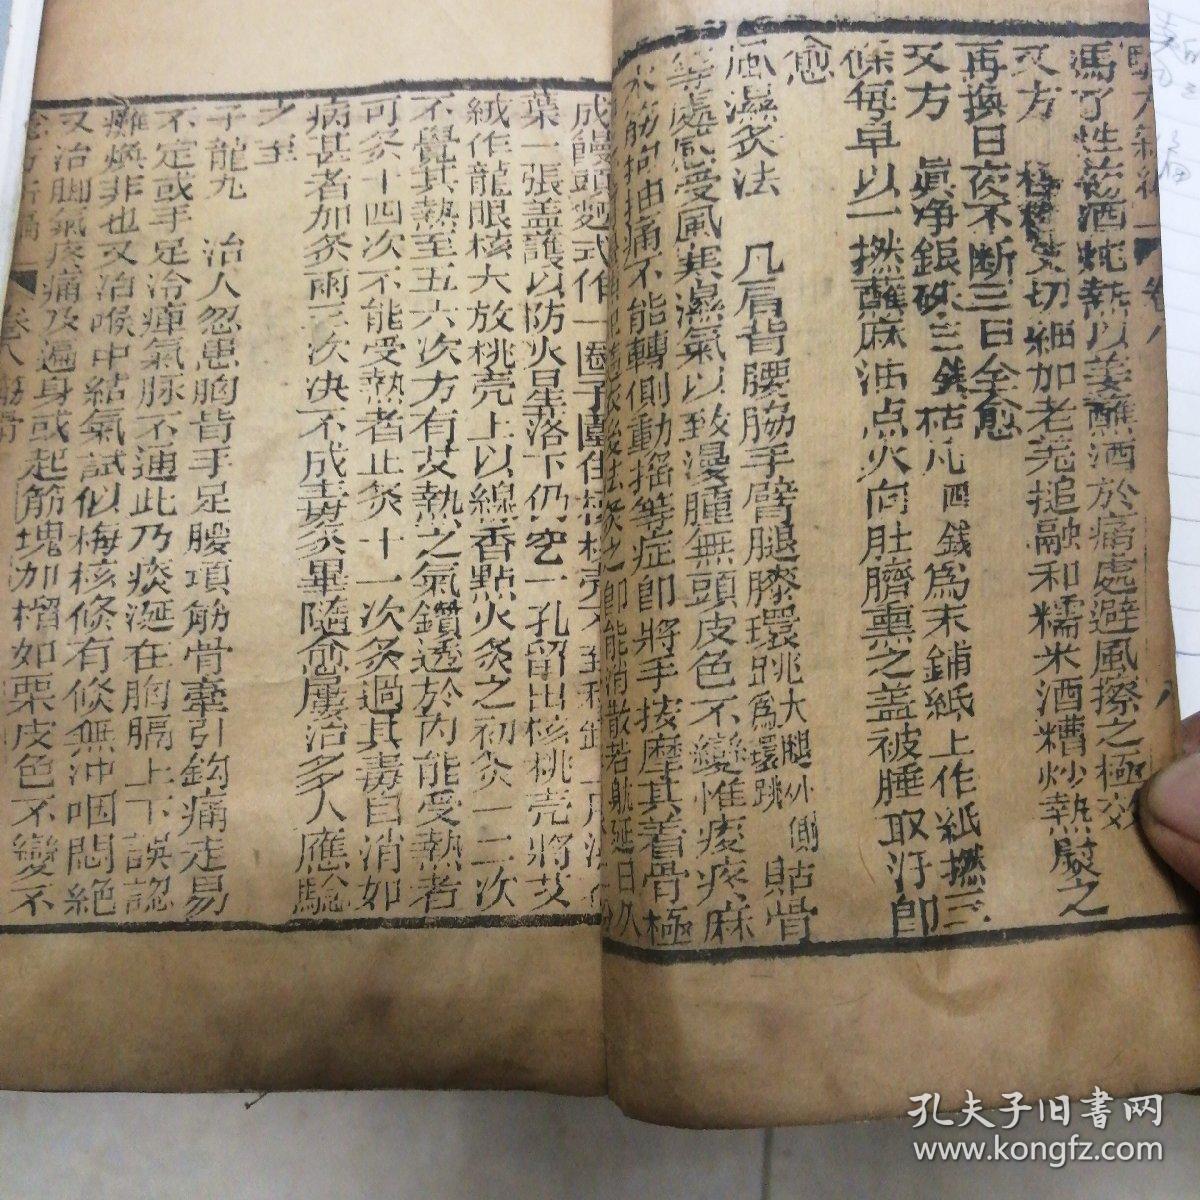 驗方新編 卷八
馮了性藥酒燉熱以姜蘸酒於痛處避風擦之極效
又方 切細加老羌搥融和糯米酒糟炒熱尉之
再換日夜不断三日全愈
又方 眞净銀硃三錢枯凡四錢爲末鋪紙上作紙撚三
條每早以一撚蘸麻油点火向肚臍熏之盖被睡取汙卽
愈
風濕灸法 凡肩背腰胁手臂腿膝環跳大腿外側骨爲環跳貼骨
等處感受風寒濕氣以致漫腫無頭皮色不變惟痠疼麻
木筋拘抽痛不能轉側動摇等症卽將手按摩其着骨極
灸之卽能消散若躭延日久
成饅頭麪式作一圈子圍住
葉一張盖護以防火星落下仍空一孔留出核桃壳將艾
絨作龍眼核大放桃壳上以線香點火灸之初灸一二次
不覺其熱至五六次方有艾熱之氣鑽透於内能受熱者
可灸十四次不能受熱者止灸十一次灸過其毒自消如
病甚者加灸兩三次决不成毒灸畢隨愈屢治多人應驗
之至
子龍丸 治人忽患胸背手足腰項筋骨牽引鈎痛走易
不定或手足冷痺氣脉不通此乃痰涎在胸膈上下誤認
癱煥非也又治喉中結氣試似梅核倏有倏無冲咽悶絶
又治脚氣疼痛及遍身或起筋塊如榴如栗皮色不變不
卷八筋骨
孔夫子旧书网
www.kongfz.com